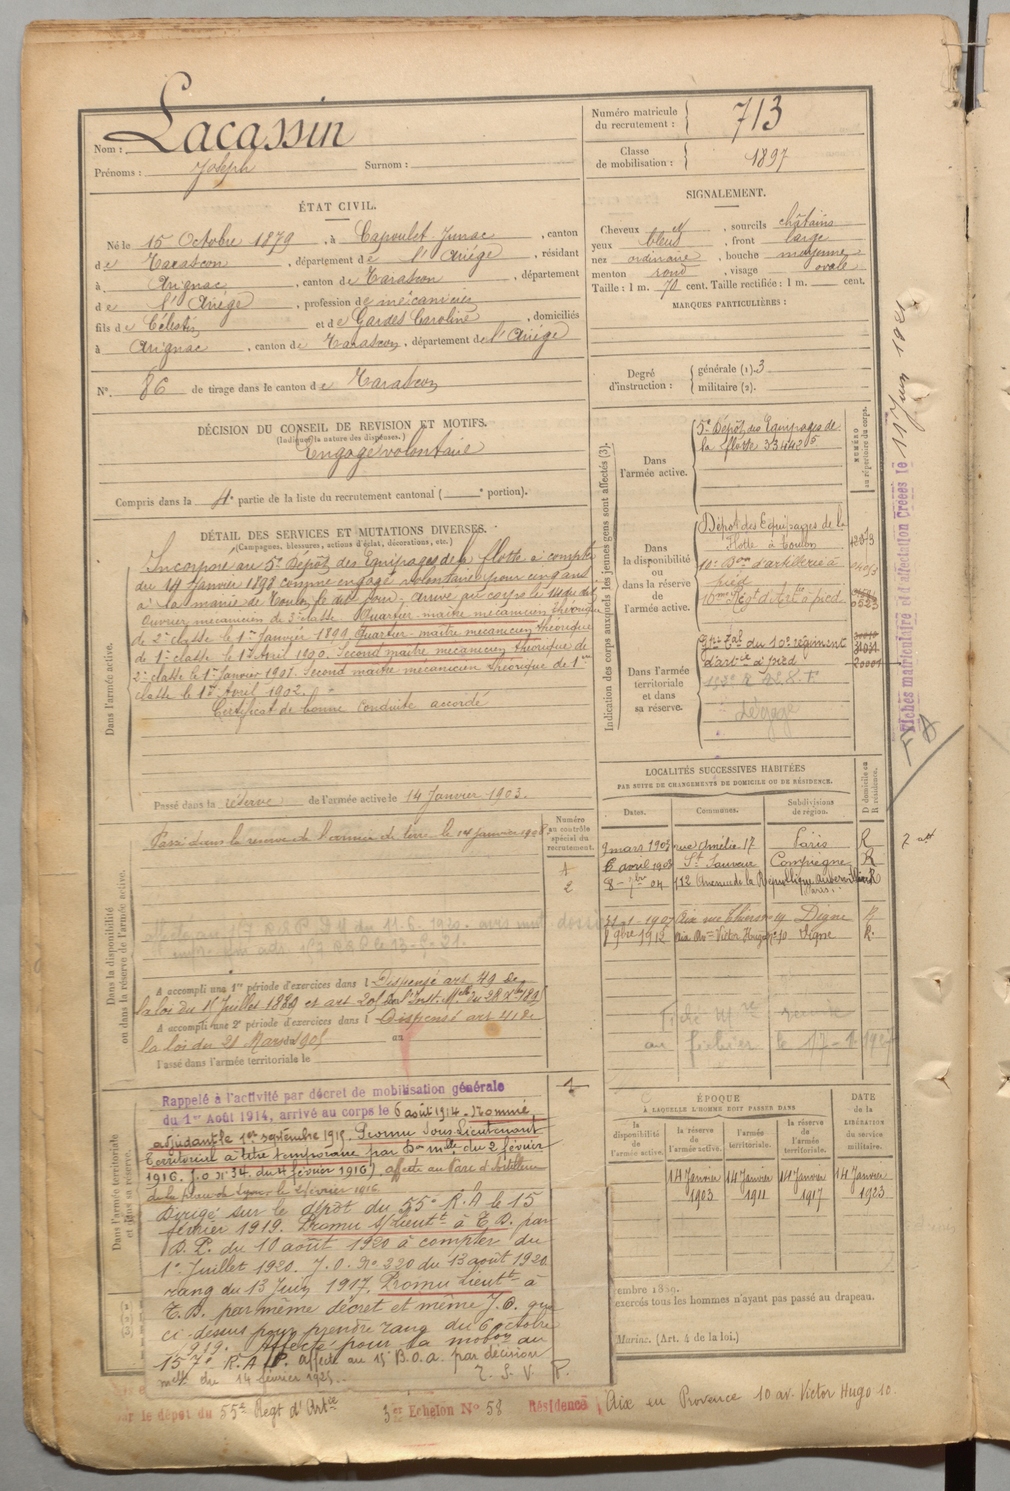 Nom : Lacassin
Prénoms : Joseph Surnom :
Numéro matricule du recrutement : 713
Classe de mobilisation : 1897
ÉTAT CIVIL.
Né le 15 Octobre 1879, à Capoulet-Junac, canton
de Tarascon, département de l'Ariége, résidant
à Arignac, canton de Tarascon, département
de l'Ariége, profession de mécanicien
fils de Célestin et de Gardes Caroline, domiciliés
à Arignac, canton de Tarascon, département de l'Ariége
N° 86 de tirage dans le canton de Tarascon
SIGNALEMENT.
Cheveux d°, sourcils châtains
yeux bleus, front large
nez ordinaire, bouche moyenne
menton rond, visage ovale
Taille : 1 m. 70 cent. Taille rectifiée : 1 m. cent.
MARQUES PARTICULIÈRES :
Degré d'instruction : générale (1). 3
militaire (2).
DÉCISION DU CONSEIL DE REVISION ET MOTIFS.
(Indiquer la nature des dispenses.)
Engagé volontaire
Compris dans la 4e partie de la liste du recrutement cantonal ( e portion).
DÉTAIL DES SERVICES ET MUTATIONS DIVERSES.
(Campagnes, blessures, actions d'éclat, décorations, etc.)
Dans l'armée active.
Incorporé au 5e Dépôt des Equipages de la flotte à compter
du 14 Janvier 1898 comme engagé volontaire pour cinq ans
à la mairie de Toulon le dit jour. Arrivé au corps le 14 du dit
Ouvrier mécanicien de 3e classe. Quartier-maître mécanicien théorique
de 2e classe le 1er Janvier 1899. Quartier-maître mécanicien théorique
de 1e classe le 1er Avril 1900. Second maître mécanicien théorique de
2e classe le 1er Janvier 1901. Second maître mécanicien théorique de 1ere
classe le 1er Avril 1902.
Certificat de bonne conduite accordé
Passé dans la réserve de l'armée active le 14 Janvier 1903.
Indication des corps auxquels les jeunes gens sont affectés (3).
NUMÉRO au répertoire du corps.
Dans l'armée active.
5e Dépôt des Equipages de
la flotte 33442 5
Dans la disponibilité ou dans la réserve de l'armée active.
Dépôt des Equipages de la
Flotte à Toulon
10e Bon d'artillerie à
pied
10me Régt d'Artie à pied 0523
Dans l'armée territoriale et dans sa réserve.
du 10e régiment
d'artie à pied 20001
Dégagé
Fiches matriculaire et d'affectation Créées le 11 Juin 1921
LOCALITÉS SUCCESSIVES HABITÉES
PAR SUITE DE CHANGEMENTS DE DOMICILE OU DE RÉSIDENCE.
Dates. Communes. Subdivisions de région. D domicile ou R résidence.
9 mars 1903 rue Amélie 17 Paris R
6 avril 1903 St Sauveur Compiègne R
8-7bre 04 112 Avenue de la République Aubervilliers R
Paris.
31-1-1907 Aix rue Thiers 19 Digne R
8 9bre 1912 Aix Bd Victor Hugo n° 10 Digne R.
au fichier le 17-1-1927
Dans la disponibilité ou dans la réserve de l'armée active.
Numéro au contrôle spécial du recrutement.
Passé dans la réserve de l'armée de terre le 14 janvier 1908.
1
2
A accompli une 1re période d'exercices dans l Dispensé art 49 de
la loi du 15 Juillet 1889 et art 205 de l'Inst. Mlle du 28 Xbre 1895
A accompli une 2e période d'exercices dans l Dispensé art 41 de
la loi du 21 Mars 1905 au
Passé dans l'armée territoriale le
Dans l'armée territoriale et dans sa réserve.
Rappelé à l'activité par décret de mobilisation générale
du 1er Août 1914, arrivé au corps le 6 août 1914. Nommé
adjudant le 1er septembre 1915. Promu Sous-Lieutenant
Territorial à titre temporaire par Don mlle du 2 février
1916. J.O. n° 34 du 4 février 1916), affecté au Parc d'Artillerie
de la place de Lyon le 2 février 1916
Dirigé sur le dépôt du 55e R.A le 15
février 1919. Promu S/Lieutt à T.D. par
D.P. du 10 août 1920 à compter du
1er Juillet 1920. J.O. N° 220 du 13 août 1920
rang du 13 Juin 1917. Promu Lieutt à
T.D. par même décret et même J.O. que
ci-dessus pour prendre rang du 6 octobre
1919. Affecté pour la mobon au
157e R.A.P. affecté au 15 B.O.A. par décision
melle du 14 février 1925.
T. S. V. P.
ÉPOQUE
À LAQUELLE L'HOMME DOIT PASSER DANS
la disponibilité de l'armée active.
la réserve de l'armée active.
l'armée territoriale.
la réserve de l'armée territoriale.
DATE de la LIBÉRATION du service militaire.
14 Janvier 1903
14 Janvier 1911
14 Janvier 1917
14 Janvier 1923
embre 1859.
exercés tous les hommes n'ayant pas passé au drapeau.
Marine. (Art. 4 de la loi.)
par le dépôt du 55e Régt d'Artie 3er Echelon N° 58 Résidence Aix en Provence 10 av. Victor Hugo 10.